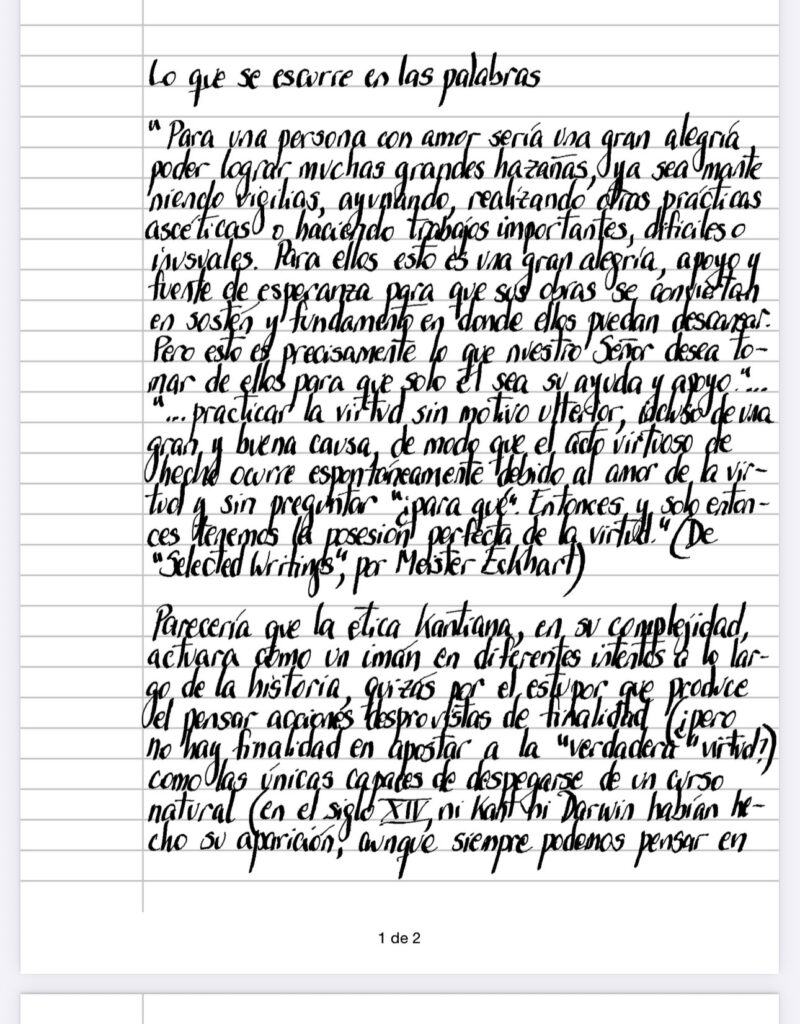 Lo que se escurre en las palabras
"Para una persona con amor sería una gran alegría
poder lograr muchas grandes hazañas, ya sea mante
niendo vigilias, ayunando, realizando otras prácticas
ascéticas o haciendo trabajos importantes, difíciles o
inusuales. Para ellos esto es una gran alegría, apoyo y
fuente de esperanza para que sus obras se conviertan
en sostén y fundamento en donde ellos puedan descansar.
Pero esto es precisamente lo que nuestro Señor desea to-
mar de ellos para que solo él sea su ayuda y apoyo."...
"...practicar la virtud sin motivo ulterior, incluso de una
gran y buena causa, de modo que el acto virtuoso de
hecho ocurre espontáneamente debido al amor de la vir-
tud y sin preguntar "¿para qué". Entonces y solo enton-
ces tenemos la posesión perfecta de la virtud." (De
"Selected Writings", por Meister Eckhart)
Parecería que la ética Kantiana, en su complejidad,
actuara como un imán en diferentes intentos a lo lar-
go de la historia, quizás por el estupor que produce
el pensar acciones desprovistas de finalidad (¿pero
no hay finalidad en apostar a la "verdadera" virtud?)
como las únicas capaces de despegarse de un curso
natural (en el siglo XIV, ni Kant ni Darwin habían he-
cho su aparición, aunque siempre podemos pensar en
1 de 2